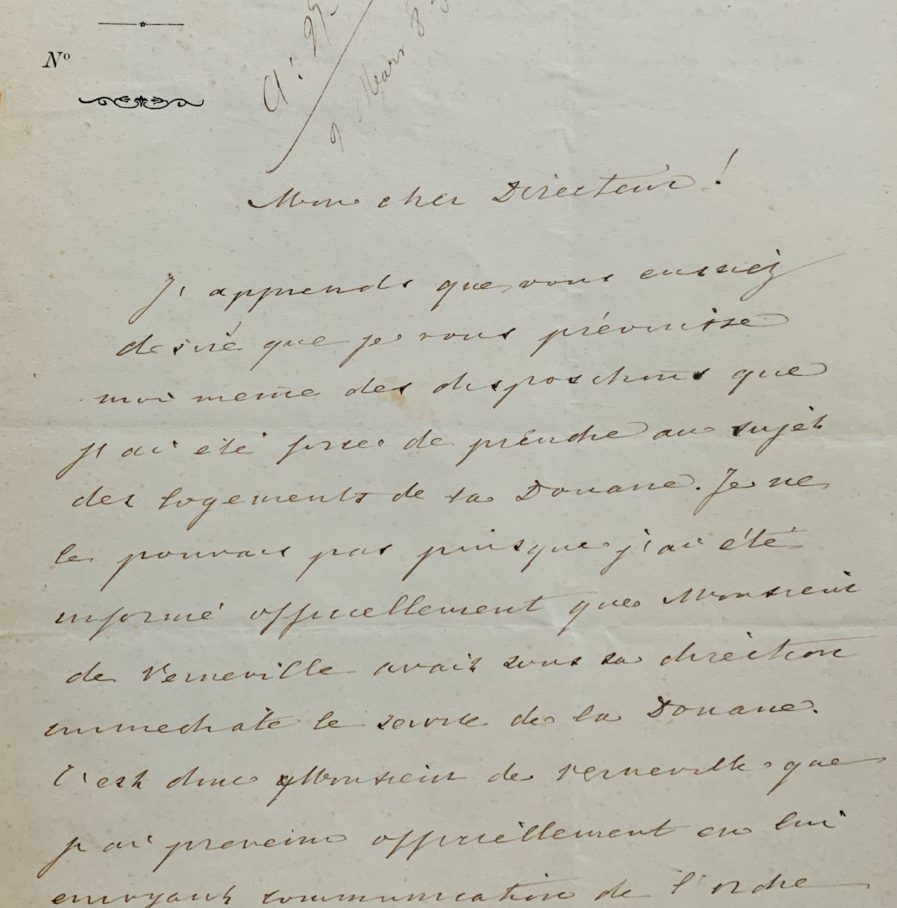 Nº
9 Mars 8
Mon cher Directeur !
J'apprends que vous eussiez
desiré que je vous prévinsse
moi même des dispositions que
j'ai été forcé de prendre au sujet
des logements de la Douane. Je ne
le pouvais pas puisque j'ai été
informé officiellement que Monsieur
de Verneville avait sous sa direction
immediate le service de la Douane.
C'est donc Monsieur de Verneville que
j'ai prevenu officiellement en lui
envoyant communication de l'ordre